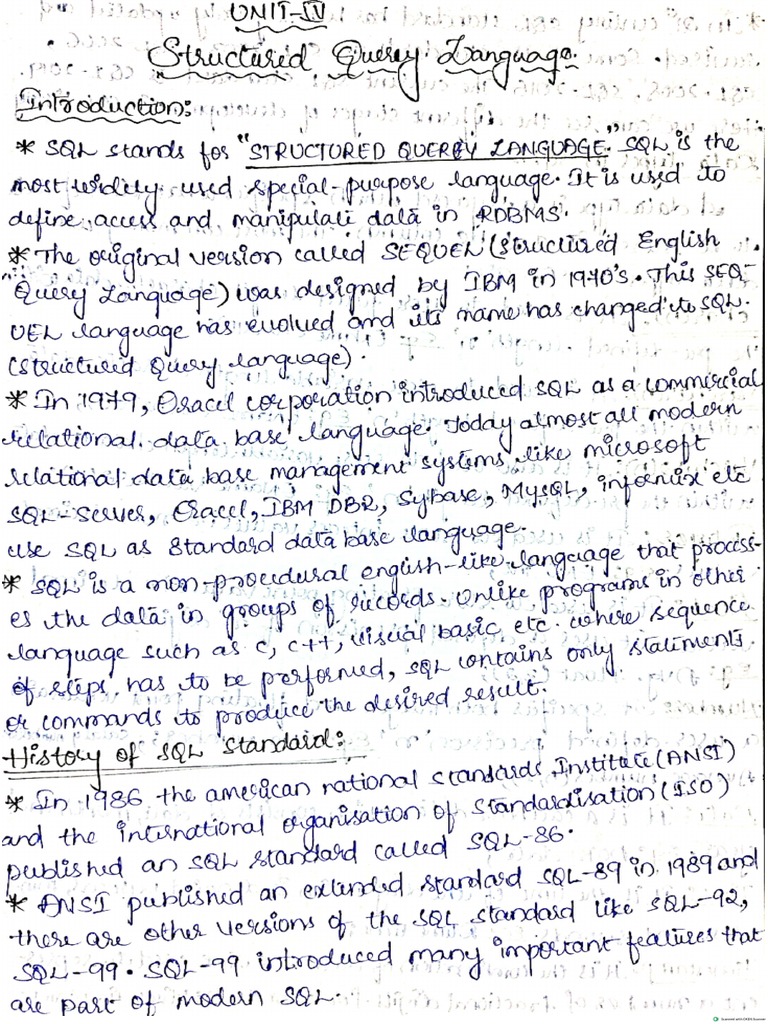 UNIT-IV
Structured Query Language.
Introduction:
* SQL stands for "STRUCTURED QUERY LANGUAGE". SQL is the
most widely used special-purpose language. It is used to
define, access and manipulate data in RDBMS.
* The original version called SEQUEL (Structured English
Query Language) was designed by IBM in 1970's. This SEQ-
UEL language has evolved and its name has changed to SQL.
(Structured Query language).
* In 1979, Oracel corporation introduced SQL as a commercial
relational data base language. Today almost all modern
relational data base management systems like microsoft
SQL-Server, Oracel, IBM DB2, Sybase, MySQL, informix etc
use SQL as standard data base language.
* SQL is a non-procedural english-like language that process-
es the data in groups of records. Unlike programs in other
language such as c, c++, visual basic etc. where sequence
of steps has to be performed, SQL contains only statements
or commands to produce the desired result.
History of SQL Standard:
* In 1986 the american national standards Institute (ANSI)
and the international organisation of standardisation (ISO)
published an SQL standard called SQL-86.
* ANSI published an extended standard SQL-89 in 1989 and
there are other versions of the SQL standard like SQL-92,
SQL-99. SQL-99 introduced many important features that
are part of modern SQL.
Scanned with OKEN Scanner